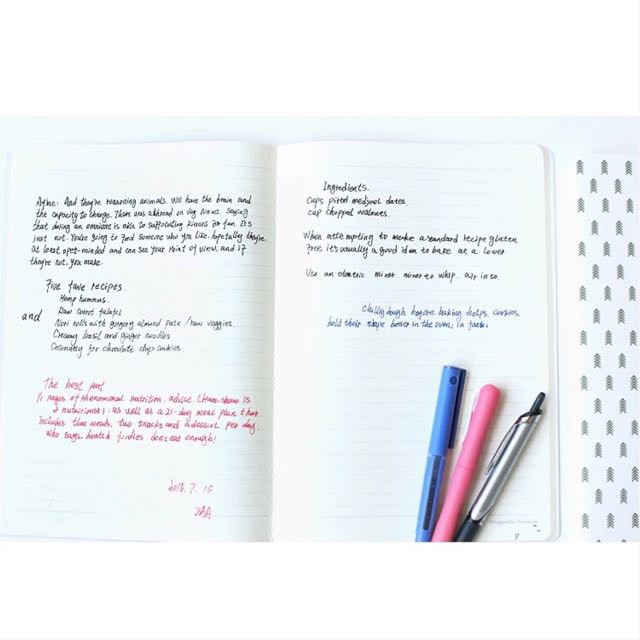 And they're reasoning animals. We have the brain and
the capacity to change. There was a thread on Veg News. Saying
that dating an omnivore is akin to suffocating kittens for fun. It's
just not. You're going to find someone who you like. hopefully they're
at least open-minded and can see your point of view, and if
they're not. You make.
Five fave recipes.
Hemp hummus.
and
Raw carrot falafel
Nori rolls with gingery almond pate / raw veggies.
Creamy basil and ginger noodles
chocolate chip
The best part
11 pages of phenomenal nutrition. advice.
nutritionist). as well as a 21-day meal plan that
includes three meals. two snacks and a dessert per day.
Who says. health foodies don't eat enough!
2018. 7. 15
ZAA
Ingredients.
cups pitted medjool dates.
cup chopped walnuts.
When attempting to make a standard recipe gluten
free it's usually a good idea to bake at a lower.
Use an electric mixer. mixer to whip. air into.
Chilling dough before baking helps. cookies,
hold their shape better in the oven; in fact: